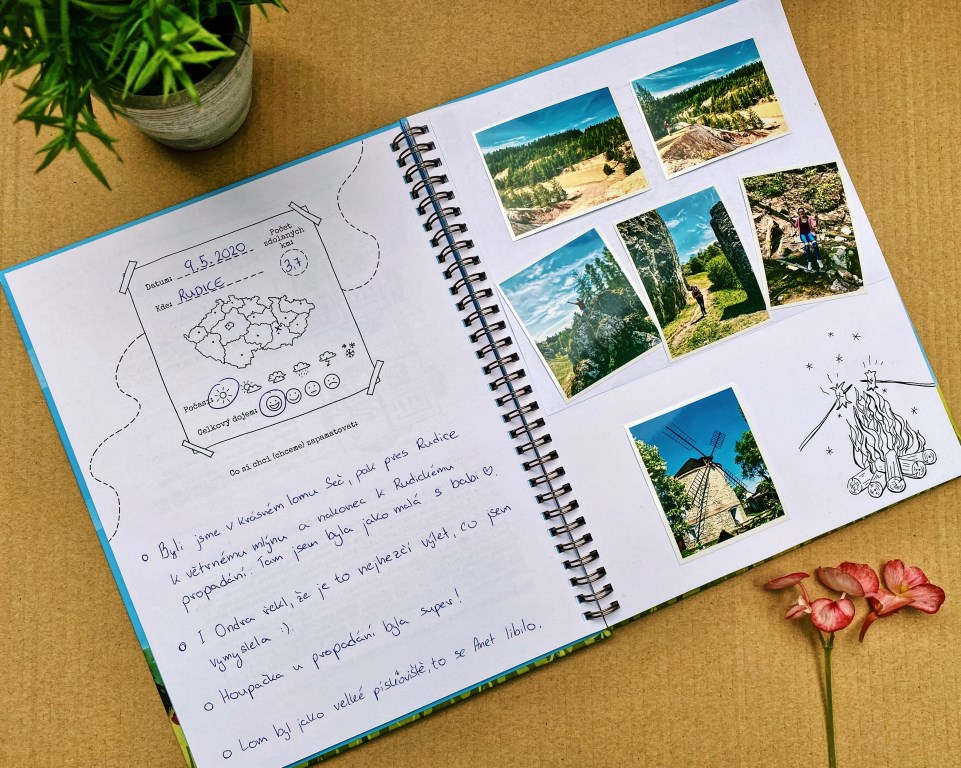 Datum: 9.5.2020
Počet
zdolaných
km:
3,7
Kde: RUDICE
Počasí:
Celkový dojem:
Co si chci (chceme) zapamatovat:
Byli jsme v krásném lomu Seč, pak přes Rudice
k větrnému mlýnu a nakonec k Rudickému
propadání. Tam jsem byla jako malá s babi ♡.
I Ondra řekl, že je to nejhezčí výlet, co jsem
vymyslela :).
Houpačka u propadání byla super!
Lom byl jako velké pískoviště, to se Anet líbilo.